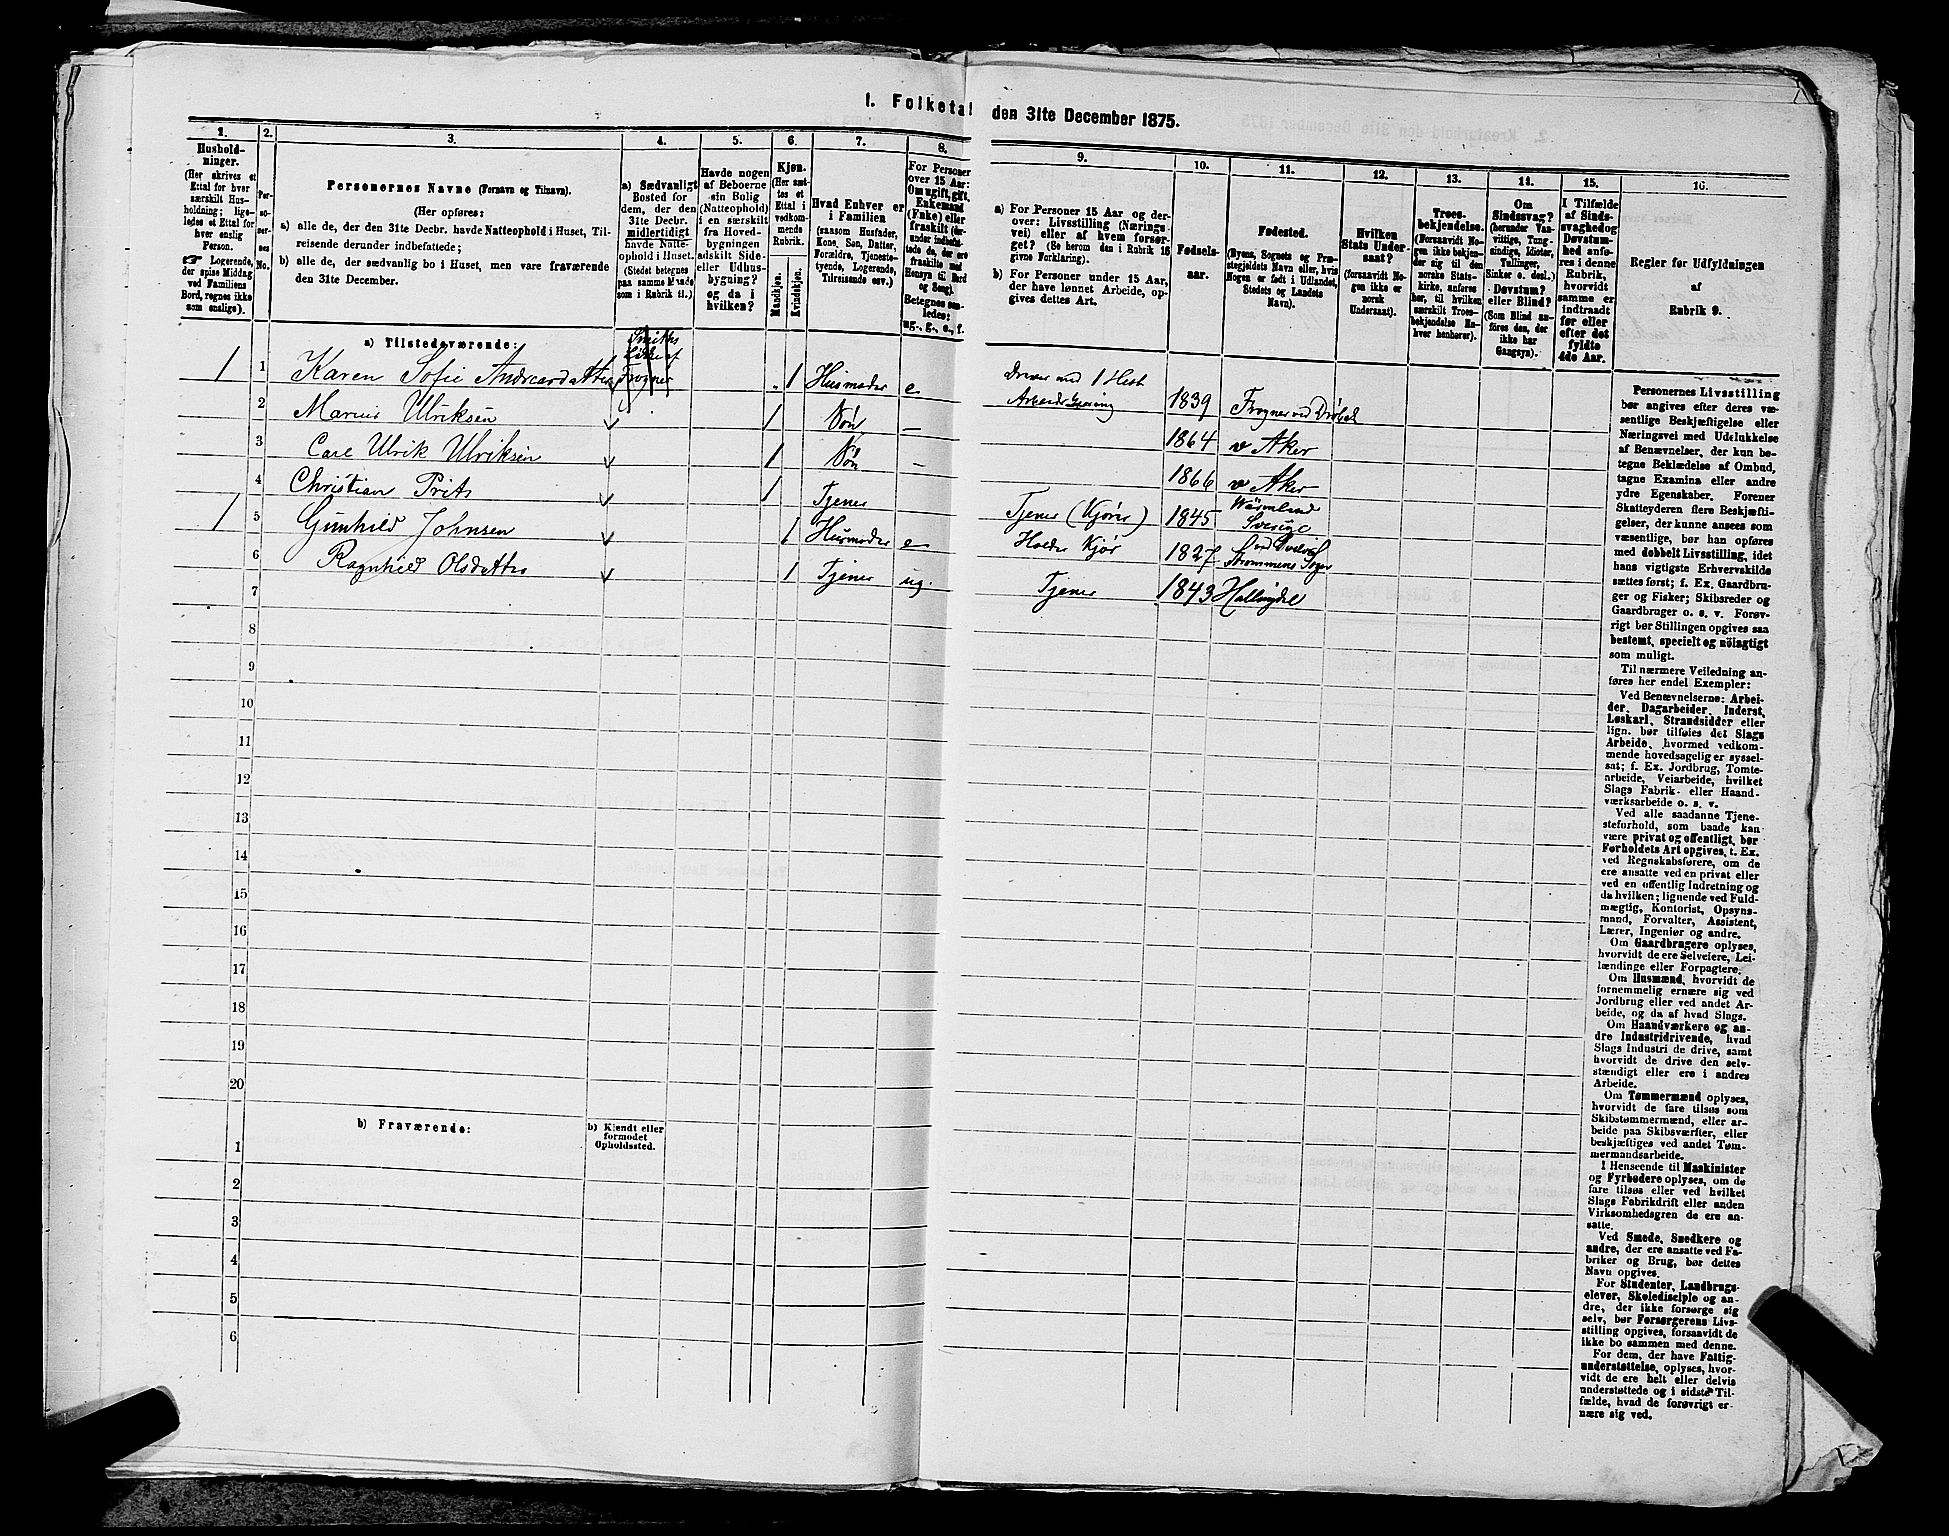 1. Folketal den 31te December 1875.
1. 2. 3. 4. 5. 6. 7. 8. 9. 10. 11. 12. 13. 14. 15. 16.
Hushold-
ninger.
(Her skrives et
Ettal for hver
særskilt Hus-
holdning; lige-
ledes et Ettal for
hver enslig
Person.
☞ Logerende,
der spise Middag
ved Familiens
Bord, regnes ikke
som enslige).
Per-
so-
ner-
nes
No.
Personernes Navne (Fornavn og Tilnavn).
(Her opføres:
a) alle de, der den 31te Decbr. havde Natteophold i Huset, Til-
reisende derunder indbefattede;
b) alle de, der sædvanlig bo i Huset, men vare fraværende
den 31te December.
a) Sædvanligt
Bosted for
dem, der den
31te Decbr.
midlertidigt
havde Natte-
ophold i Huset.
(Stedet betegnes
paa samme Maade
som i Rubrik 11.)
Havde nogen
af Beboerne
sin Bolig
(Natteophold)
i en særskilt
fra Hoved-
bygningen
adskilt Side-
eller Udhus-
bygning?
og da i
hvilken?
Kjøn.
(Her sæt-
tes et
Ettal i
vedkom-
mende
Rubrik.
Mandkjøn.
Kvindekjøn.
Hvad Enhver er
i Familien
(saasom Husfader,
Kone, Søn, Datter,
Forældre, Tjeneste-
tyende, Logerende,
Tilreisende osv.)
For Personer
over 15 Aar:
Om ugift, gift,
Enkemand
(Enke) eller
fraskilt (der-
under indbefat-
tede de, der ere
fraskilte med
Hensyn til Bord
og Seng).
Betegnes saa-
ledes:
ug., g., e., f.
a) For Personer 15 Aar og der-
over: Livsstilling (Nærings-
vei) eller af hvem forsør-
get? (Se herom den i Rubrik 16
givne Forklaring).
b) For Personer under 15 Aar,
der have lønnet Arbeide, op-
gives dettes Art.
Fødsels-
aar.
Fødested.
(Byens, Sognets og Præ-
stegjeldets Navn eller, hvis
Nogen er født i Udlandet,
Stedets og Landets
Navn).
Hvilken
Stats Under-
saat?
(forsaavidt No-
gen ikke er
norsk
Undersaat).
Troes-
bekjendelse.
(Forsaavidt No-
gen ikke bekjen-
der sig til den
norske Stats-
kirke, anføres
her, til hvilken
særskilt Troes-
bekjendelse En-
hver henhører).
Om
Sindssvag?
(herunder Van-
vittige, Tung-
sindige, Idioter,
Tullinger,
Sinker o. desl.)
Døvstum?
eller Blind?
(Som Blind an-
føres den, der
ikke har
Gangsyn).
I Tilfælde
af Sinds-
svaghed og
Døvstum-
hed anfø-
res i denne
Rubrik,
hvorvidt
samme er
indtraadt
før eller
efter det
fyldte
4de Aar.
Regler for Udfyldningen
af
Rubrik 9.
a) Tilstedeværende:
Smiths
Løkke af
Frogner
1 1 Karen Sofie Andreasdatter 1 Husmoder e Driver med 1 Hest
Arbeidskjøring 1839 Frogner ved Drøbak
2 Marius Ulriksen 1 Søn — 1864 v Aker
3 Carl Ulrik Ulriksen 1 Søn — 1866 v Aker
4 Christian Prits 1 Tjener Tjener (Kjører) 1845 Wärmland
Sverige
1 5 Gunhild Johnsen 1 Husmoder e Holder Kjør 1827 ved Svelvig
Strømmens Sogn
6 Ragnhild Olsdatter 1 Tjener ug. Tjener 1843 Hallingdal
7
8
9
10
11
12
13
14
15
16
17
18
19
20
b) Fraværende:
b) Kjendt eller
formodet
Opholdssted.
1
2
3
4
5
6
Personernes Livsstilling
bør angives efter deres væ-
sentlige Beskjæftigelse eller
Næringsvei med Udelukkelse
af Benævnelser, der kun be-
tegne Beklædelse af Ombud,
tagne Examina eller andre
ydre Egenskaber. Forener
Skatteyderen flere Beskjæfti-
gelser, der kunne ansees som
væsentlige, bør han opføres
med dobbelt Livsstilling, idet
hans vigtigste Erhvervskilde
sættes først; f. Ex. Gaardbru-
ger og Fisker; Skibsreder og
Gaardbruger o. s. v. Forøv-
rigt bør Stillingen opgives saa
bestemt, specielt og nöiagtigt
som muligt.
Til nærmere Veiledning an-
føres her endel Exempler:
Ved Benævnelserne: Arbei-
der, Dagarbeider, Inderst,
Løskarl, Strandsidder eller
lign. bør tilføies det Slags
Arbeide, hvormed vedkom-
mende hovedsagelig er syssel-
sat; f. Ex. Jordbrug, Tomte-
arbeide, Veiarbeide, hvilket
Slags Fabrik- eller Haand-
værksarbeide o. s. v.
Ved alle saadanne Tjene-
steforhold, som baade kan
være privat og offentligt, bør
Forholdets Art opgives, t. Ex.
ved Regnskabsførere, om de
ere ansatte ved en privat eller
ved en offentlig Indretning og
da hvilken; lignende ved Fuld-
mægtig, Kontorist, Opsyns-
mand, Forvalter, Assistent,
Lærer, Ingeniør og andre.
Om Gaardbrugere oplyses,
hvorvidt de ere Selveiere, Lei-
lændinge eller Forpagtere.
Om Husmænd, hvorvidt de
fornemmelig ernære sig ved
Jordbrug eller ved andet Ar-
beide, og da af hvad Slags.
Om Haandværkere og an-
dre Industridrivende, hvad
Slags Industri de drive, samt
hvorvidt de drive den selv-
stændigt eller ere i andres
Arbeide.
Om Tømmermænd oplyses,
hvorvidt de fare tilsøs som
Skibstømmermænd, eller ar-
beide paa Skibsværfter, eller
beskjæftiges ved andet Tøm-
mermandsarbeide.
I Henseende til Maskinister
og Fyrbødere oplyses, om de
fare tilsøs eller ved hvilket
Slags Fabrikdrift eller anden
Virksomhedsgren de ere an-
satte.
Ved Smede, Snedkere og
andre, der ere ansatte ved Fa-
briker og Brug, bør dettes
Navn opgives.
For Studenter, Landbrugs-
elever, Skoledisciple og an-
dre, der ikke forsørge sig
selv, bør Forsørgerens Livs-
stilling opgives, forsaavidt de
ikke bo sammen med denne.
For dem, der have Fattig-
understøttelse, oplyses, hvor-
vidt de ere helt eller delvis
understøttede og i sidste Til-
fælde, hvad de forøvrigt er-
nære sig ved.